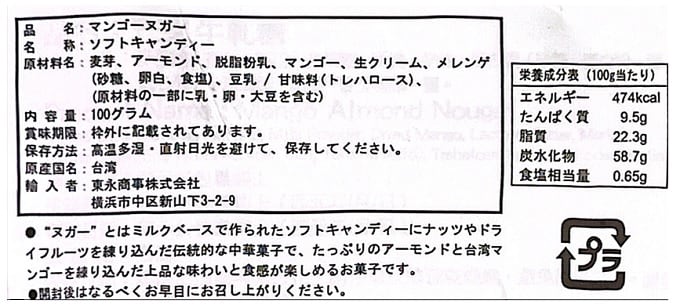 品名：マンゴーヌガー
名称：ソフトキャンディー
原材料名：麦芽、アーモンド、脱脂粉乳、マンゴー、生クリーム、メレンゲ
(砂糖、卵白、食塩)、豆乳 / 甘味料(トレハロース)、
(原材料の一部に乳・卵・大豆を含む)
内容量：100グラム
賞味期限：枠外に記載されてあります。
保存方法：高温多湿・直射日光を避けて、保存してください。
原産国名：台湾
輸入者：東永商事株式会社
横浜市中区新山下3-2-9
栄養成分表（100g当たり）
エネルギー 474kcal
たんぱく質 9.5g
脂質 22.3g
炭水化物 58.7g
食塩相当量 0.65g
●“ヌガー”とはミルクベースで作られたソフトキャンディーにナッツやドラ
イフルーツを練り込んだ伝統的な中華菓子で、たっぷりのアーモンドと台湾マ
ンゴーを練り込んだ上品な味わいと食感が楽しめるお菓子です。
●開封後はなるべくお早目にお召し上がりください。
プラ